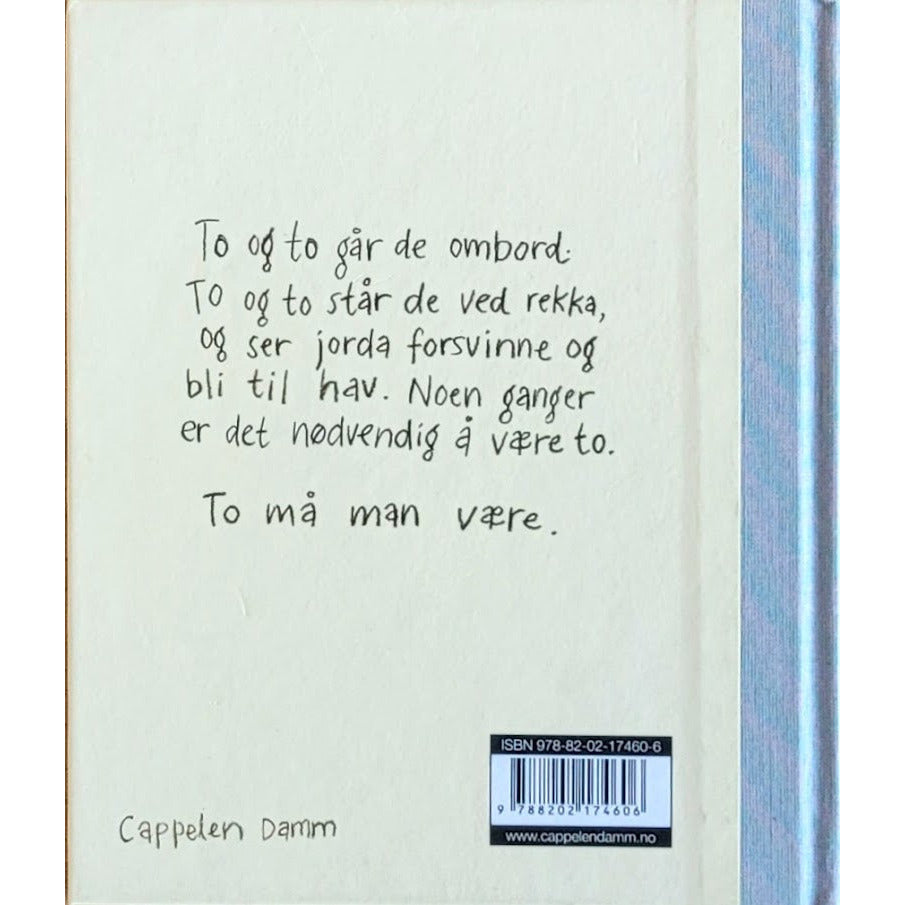 To og to går de ombord.
To og to står de ved rekka,
og ser jorda forsvinne og
bli til hav. Noen ganger
er det nødvendig å være to.
To må man være.
ISBN 978-82-02-17460-6
9 788202 174606
www.cappelendamm.no
Cappelen Damm